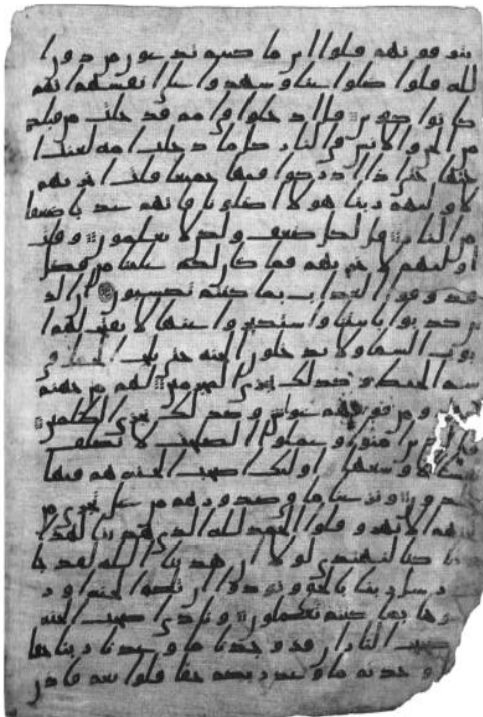 يتوفونهم قلوا اين ما كنتم تدعون من دون ا
لله قلوا ضلوا عنا وشهدوا على انفسهم انهم
كانوا كفرين قل ادخلوا في امم قد خلت من قبلكم
من الجن والانس في النار كلما دخلت امه لعنت ا
ختها حتى اذا ادركوا فيها جميعا قلت اخريهم
لاوليهم ربنا هولا اضلونا فاتهم عذبا ضعفا
من النار قل لكل ضعف ولكن لا تعلمون وقلت
اوليهم لاخريهم فما كان لكم علينا من فضل
فذوقوا العذاب بما كنتم تكسبون ان الذ
ين كذبوا بايتنا واستكبروا عنها لا تفتح لهم ا
بوب السما ولا يدخلون الجنه حتى يلج الجمل في
سم الخيط وكذلك نجزي المجرمين لهم من جهنم
ومن فوقهم غواش وكذلك نجزي الظلمين
والذين امنوا وعملوا الصلحت لا نكلف
الا وسعها اولئك اصحب الجنه هم فيها
خلدون ونزعنا ما في صدورهم من غل تجري من
تحتهم الانهر وقلوا الحمد لله الذي هدينا لهذا
كنا لنهتدي لولا ان هدينا الله لقد جا
ت رسل ربنا بالحق ونودوا ان تلكم الجنه اور
ثتموها بما كنتم تعملون ونادى اصحب الجنه
اصحب النار ان قد وجدنا ما وعدنا ربنا حقا
وجدتم ما وعد ربكم حقا قلوا نعم فاذن